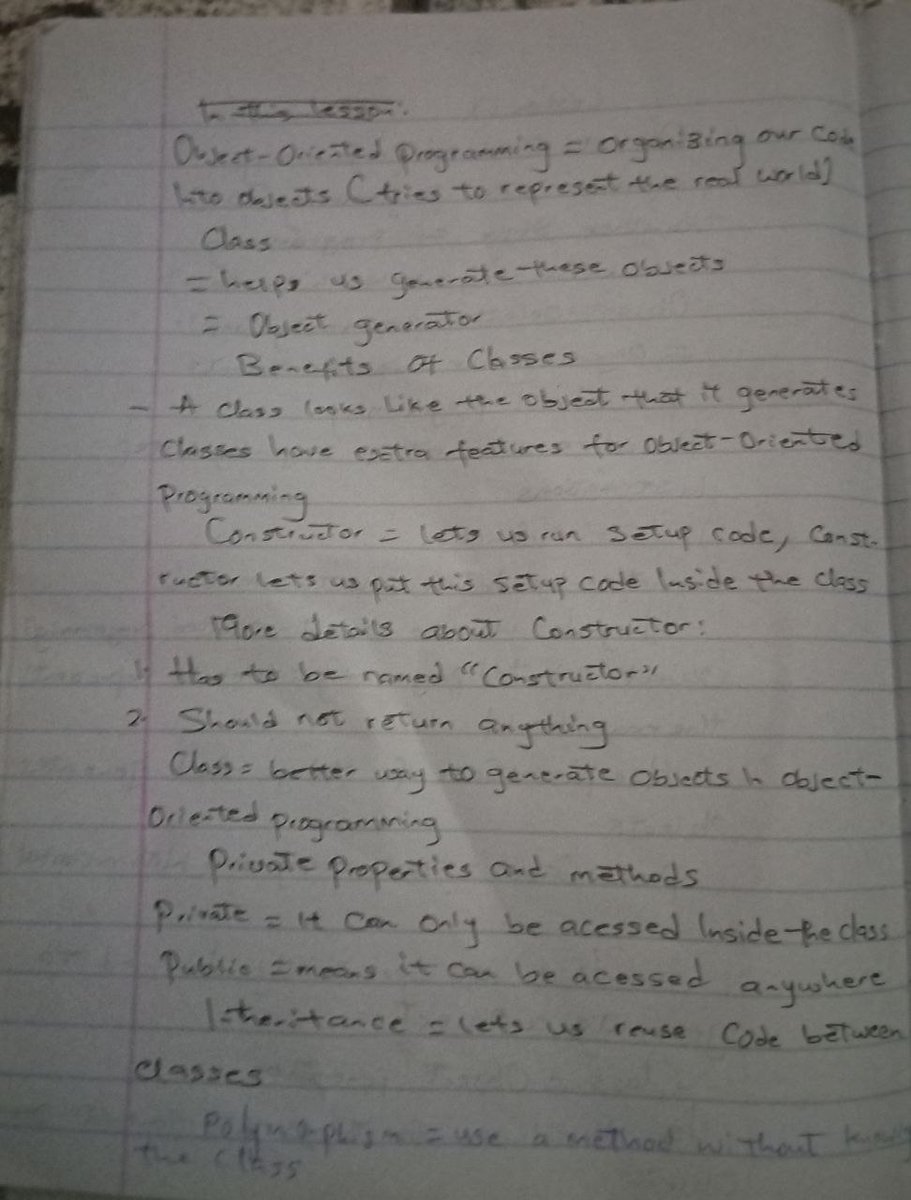 In this lesson:
Object-Oriented Programming = Organizing our Code
Into objects (tries to represent the real world)
Class
= helps us generate these objects
= Object generator
Benefits Of Classes
- A class looks Like the object that it generates
Classes have extra features for Object-Oriented
Programming
Constructor = lets us run Setup code, Const-
ructor lets us put this setup code Inside the class
More details about Constructor:
1. Has to be named "Constructor"
2. Should not return anything
Class = better way to generate objects In object-
Oriented programming
Private Properties and methods
Private = It can only be acessed Inside the class
Public = means it can be acessed anywhere
Inheritance = lets us reuse Code between
classes
Polymophism = use a method without
the class